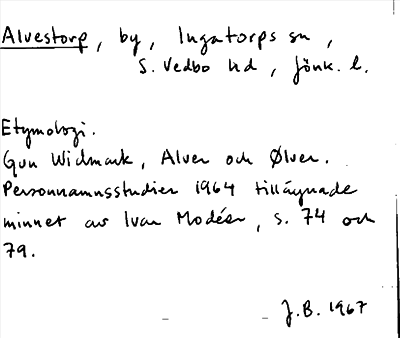 Alvestorp, by, Ingatorps sn,
S. Vedbo hd, Jönk. l.
Etymologi.
Gun Widmark, Alver och Ølver.
Personnamnsstudier 1964 tillägnade
minnet av Ivar Modéer, s. 74 och
79.
J.B. 1967